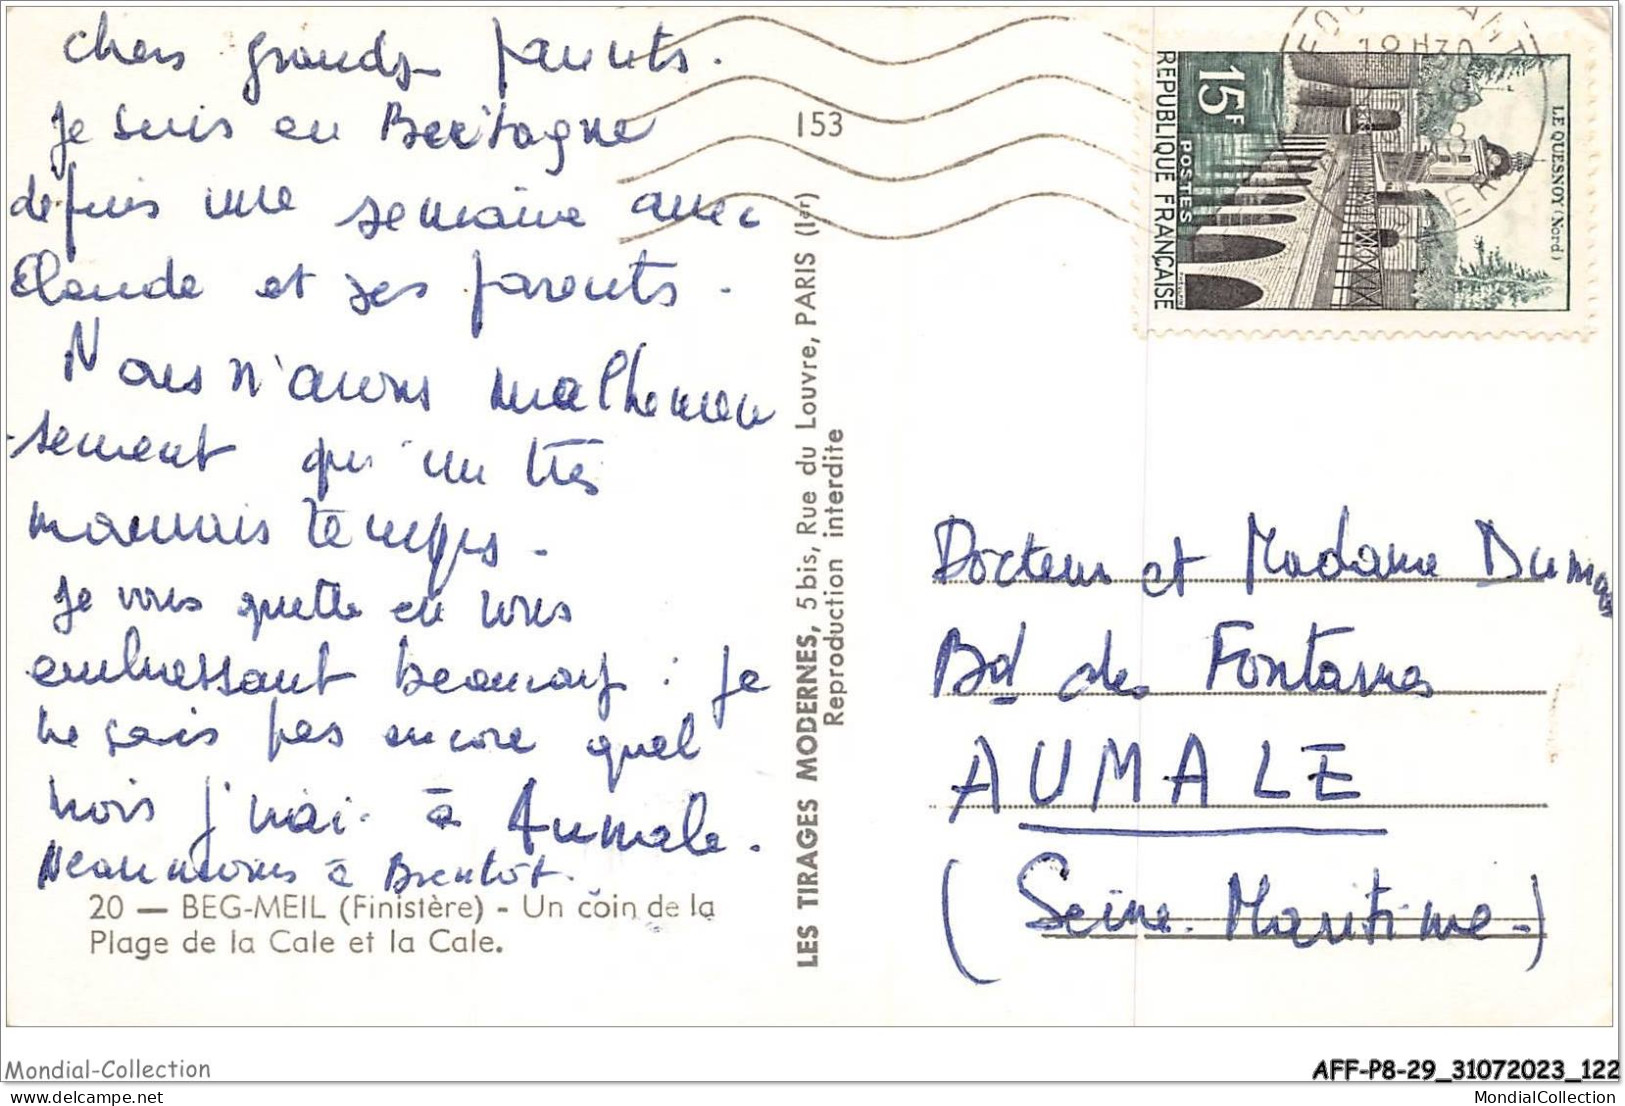 chers grands parents.
Je suis en Bretagne
depuis une semaine avec
Claude et ses parents.
Nous n'avons malheureu
-sement qu'un très
mauvais temps.
Je vous quitte en vous
embrassant beaucoup : je
ne sais pas encore quel
mois j'irai à Aumale.
Neanmoins à Bientôt.
20 — BEG-MEIL (Finistère) - Un coin de la
Plage de la Cale et la Cale.
153
LES TIRAGES MODERNES, 5 bis, Rue du Louvre, PARIS (1er)
Reproduction interdite
15F
POSTES
REPUBLIQUE FRANÇAISE
LE QUESNOY (Nord)
18H30
Docteur et Madame Dumas
Bd des Fontaines
AUMALE
(Seine-Maritime-)
Mondial-Collection
AFF-P8-29_31072023_122
MondialCollection